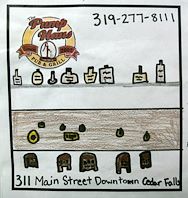 319-277-8111
Pump
Haus
PUB & GRILL
311 Main Street Downtown Cedar Falls